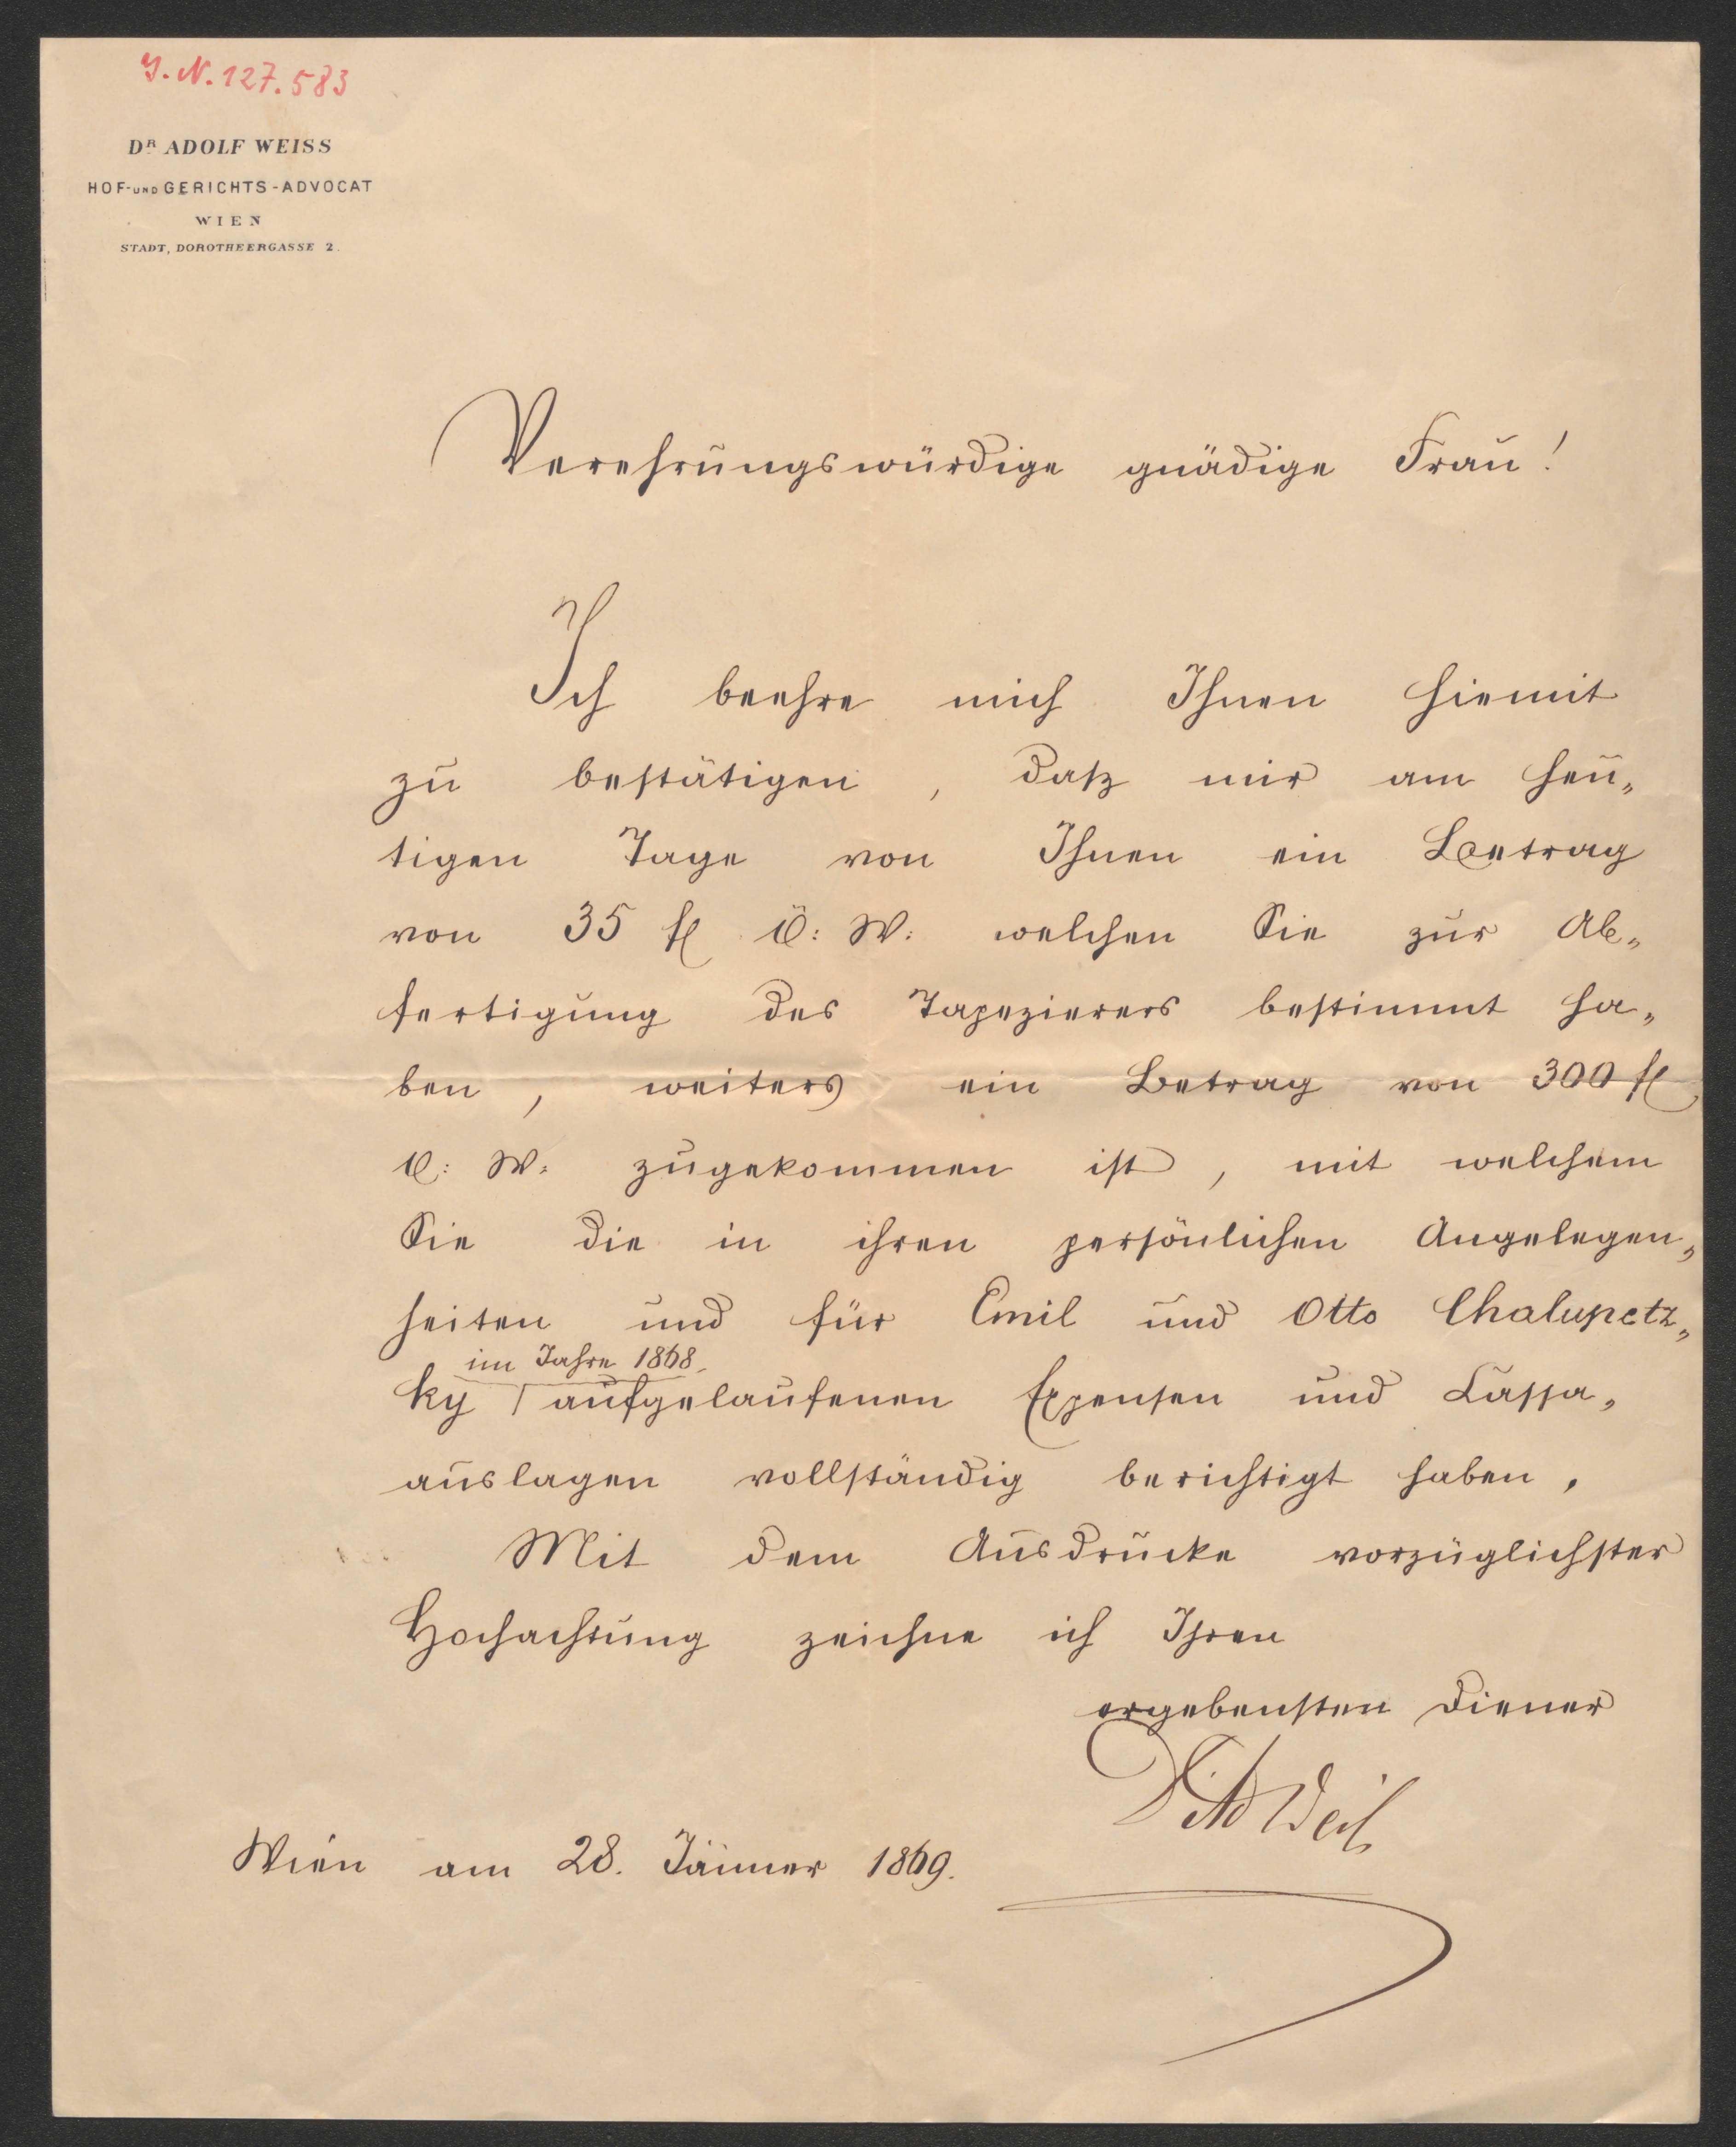 I. N. 127.583
DR ADOLF WEISS
HOF- UND GERICHTS-ADVOCAT
WIEN
STADT, DOROTHEERGASSE 2.
Verehrungswürdige gnädige Frau!
Ich beehre mich Ihnen hiemit
zu bestätigen, daß mir am heu„
tigen Tage von Ihnen ein Betrag
von 35 fl Ö: W: welchen Sie zur Ab„
fertigung des Tapezierers bestimmt ha„
ben, weiters ein Betrag von 300 fl
Ö: W: zugekommen ist, mit welchem
Sie die in ihren persönlichen Angelegen„
heiten und für Emil und Otto Chalupetz„
im Jahre 1868
ky aufgelaufenen Expensen und Cassa„
auslagen vollständig berichtigt haben.
Mit dem Ausdrucke vorzüglichster
Hochachtung zeichne ich Ihren
ergebensten Diener
Dr Ad Weiß
Wien am 28. Jänner 1869.